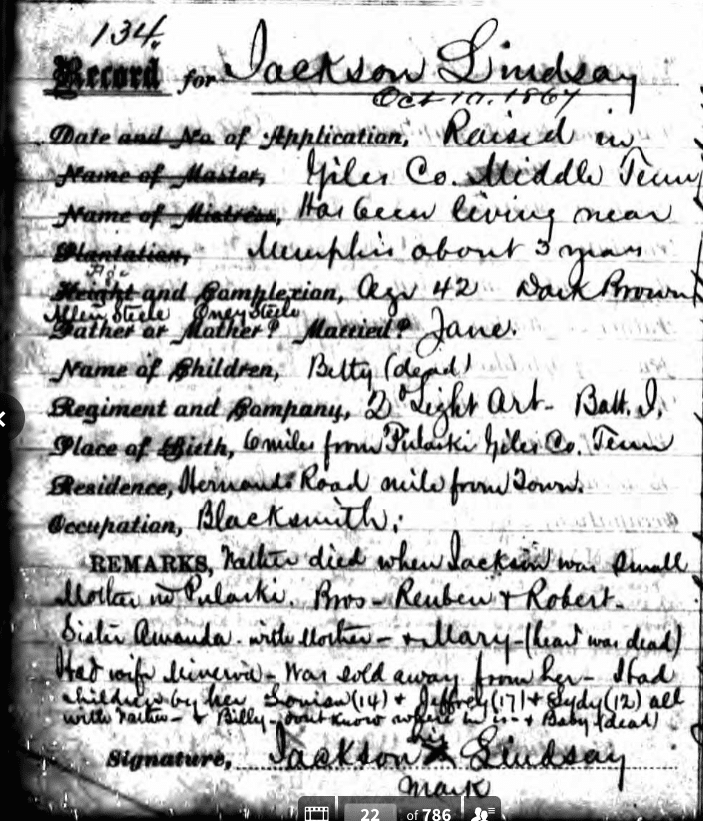 134.
Record for Jackson Lindsay
Oct 10. 1867
Date and No. of Application, Raised in
Name of Master, Giles Co. Middle Tenn
Name of Mistress, Has been living near
Plantation, Memphis about 3 years
Age
Height and Complexion, Age 42 Dark Brown
Allen Steele Oney Steele
Father or Mother? Married? Jane.
Name of Children, Betty (dead)
Regiment and Company, 2d Light Art- Batt. I.
Place of Birth, 6 miles from Pulaski Giles Co. Tenn
Residence, Hernando Road mile from Town.
Occupation, Blacksmith.
REMARKS, Father died when Jackson was small
Mother in Pulaski. Bros- Reuben & Robert-
Sister Amanda- with Mother- & Mary- (heard was dead)
Had wife Minerva- Was sold away from her- Had
children by her Louisa (14) & Jeffrey (17) & Sydy (12) all
with Father- & Billy- dont know where he is- & Baby (dead)
his
Signature, Jackson X Lindsay
mark
22 of 786